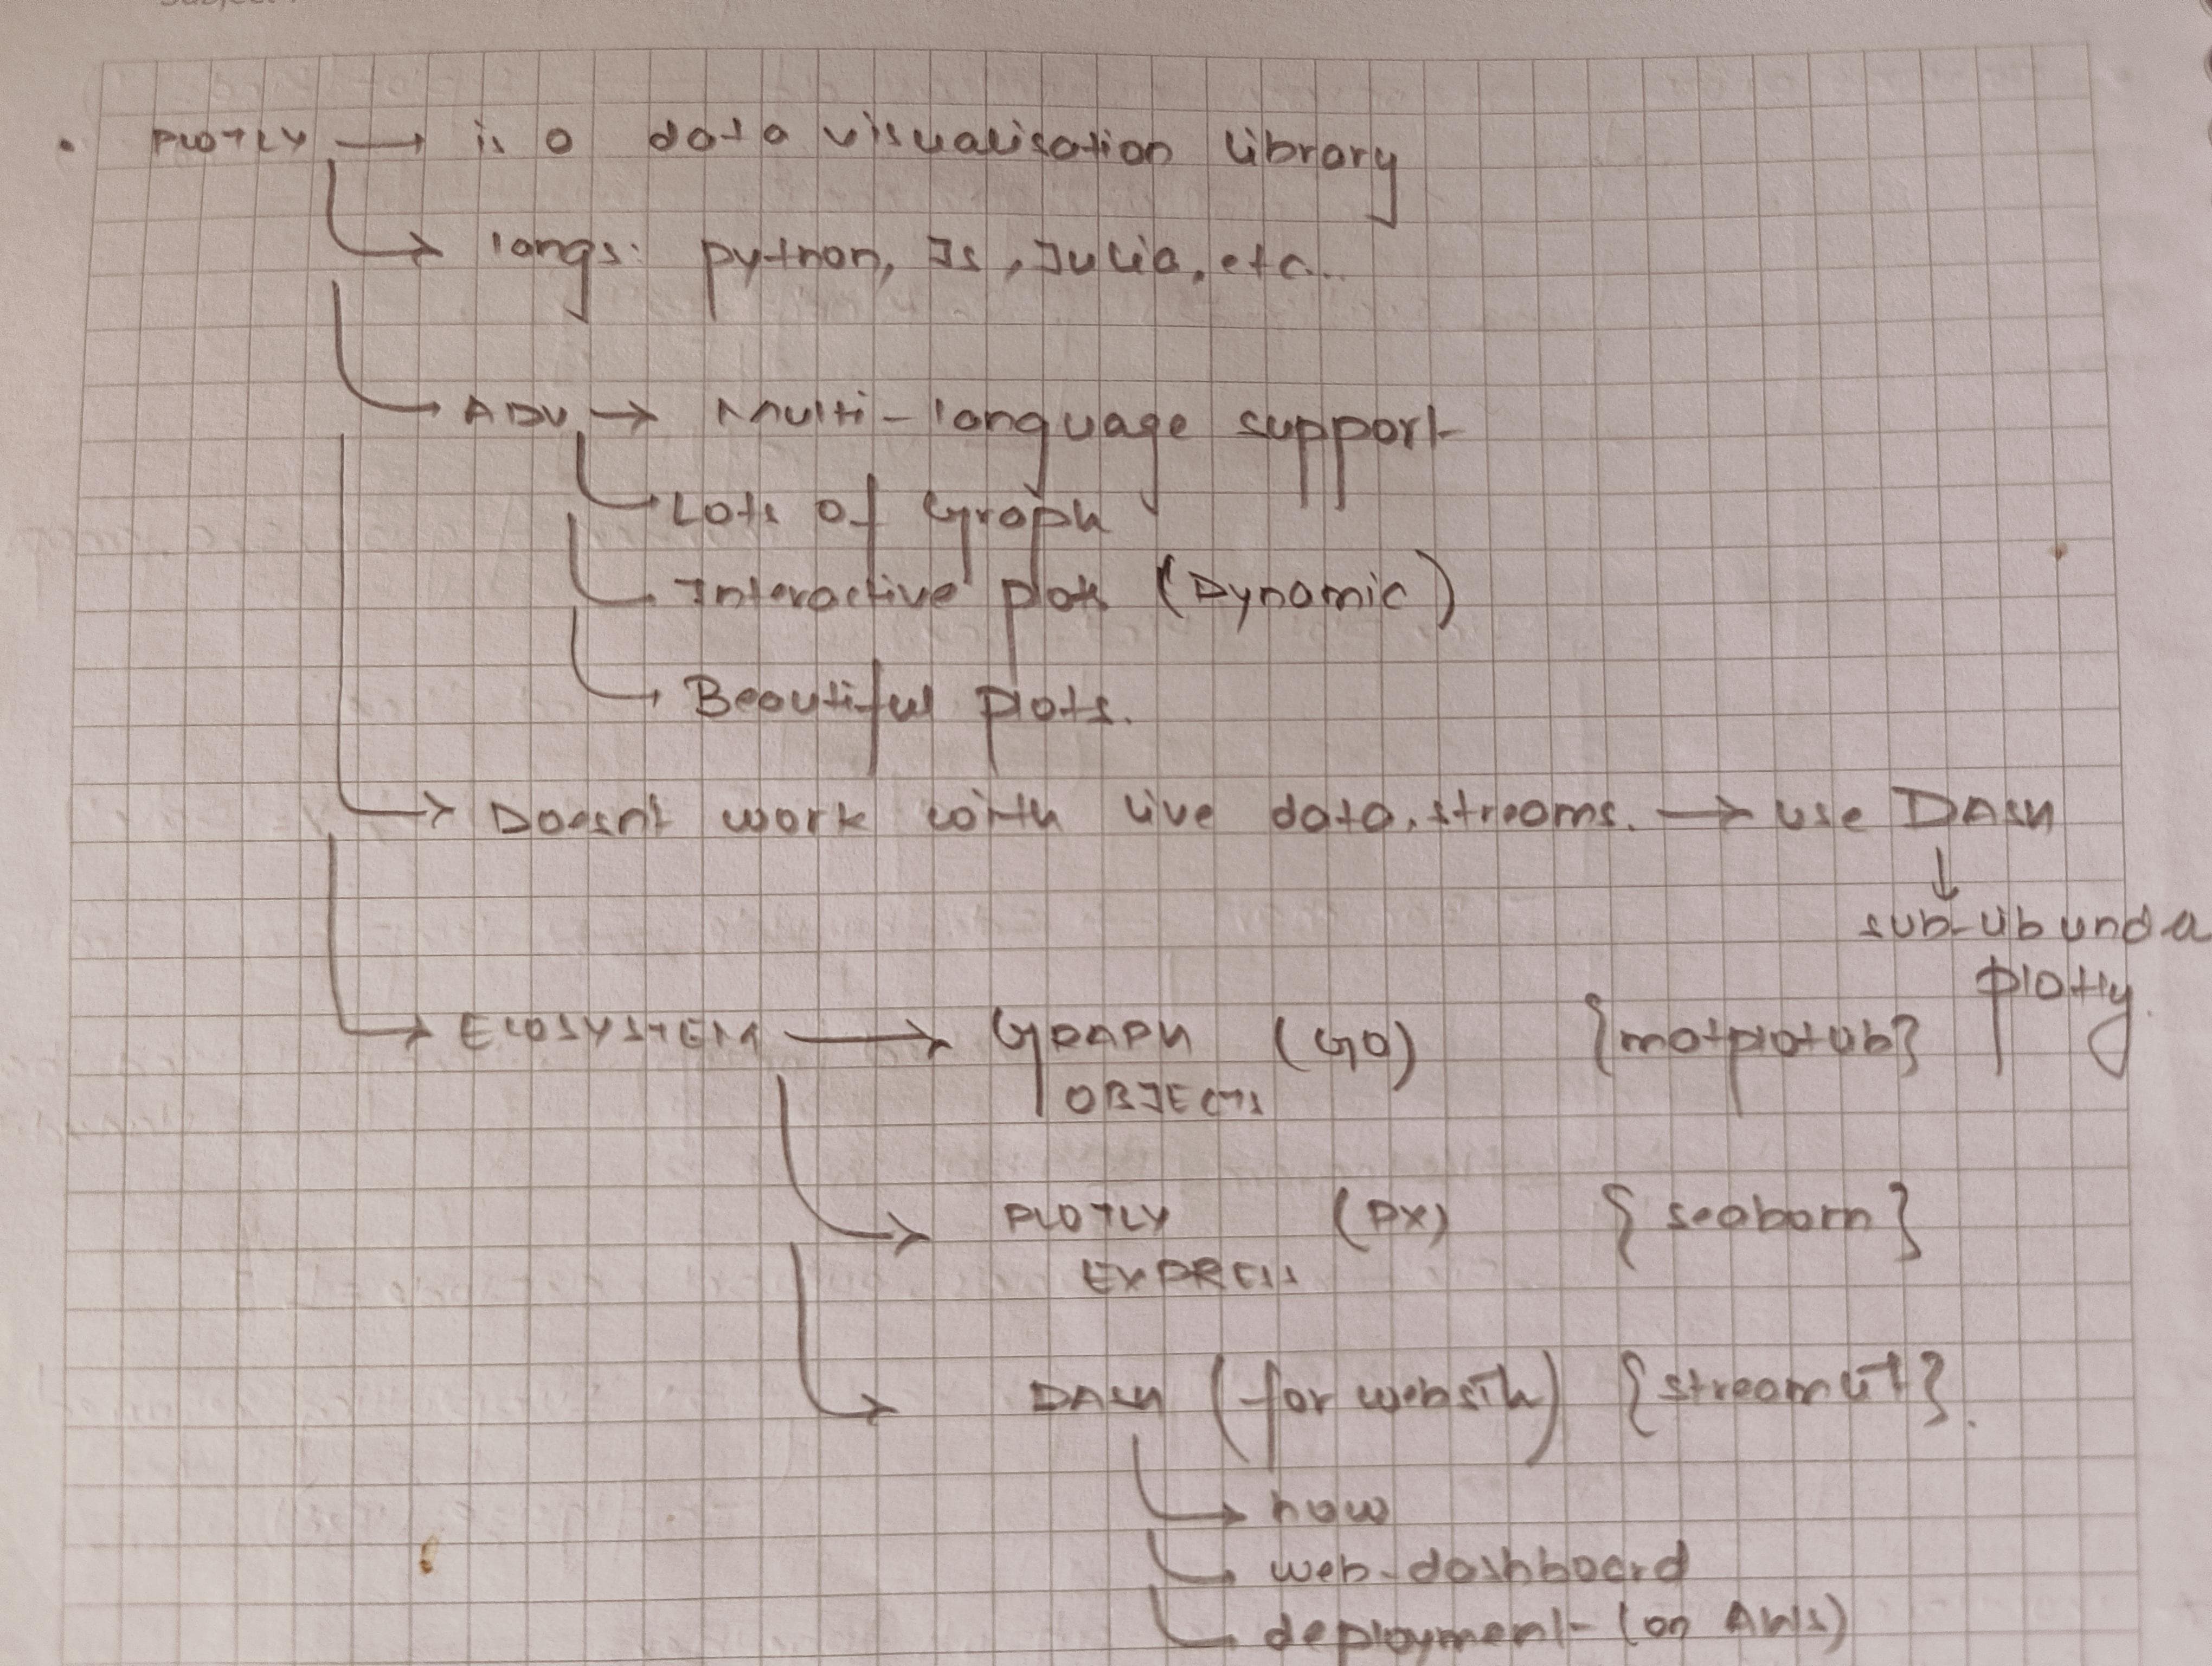 • PLOTLY → is a data visualisation library
langs: python, Js, Julia, etc..
ADV → Multi-language support
Lots of Graph
Interactive plots (Dynamic)
Beautiful plots.
Doesn't work with live data.streams. → use DASH
↓
sub-lib under
plotly.
ECOSYSTEM → GRAPH (GO) {matplotlib}
OBJECTS
PLOTLY (PX) {seaborn}
EXPRESS
DASH (for website) {streamlit}.
how
web-dashboard
deployment (on AWS)